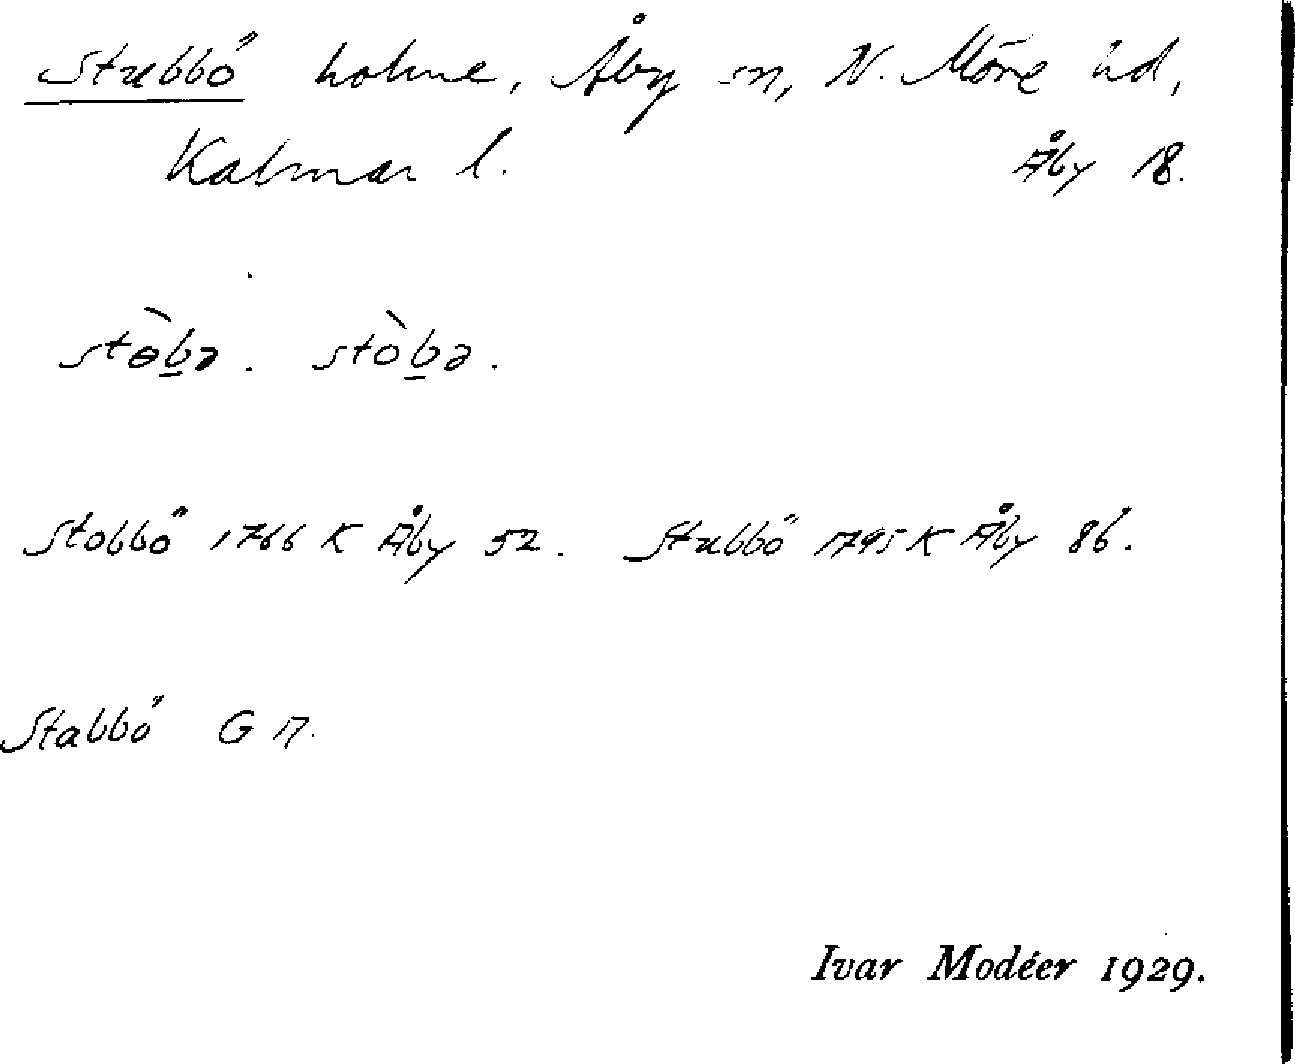 Stubbö holme, Åby sn, N. Möre hd,
Kalmar l. Åby 18.
stɵ̀b̲ə. stòb̲ə.
Stobbö 1766 K Åby 52. Stubbö 1795 K Åby 86.
Stabbö G 17.
Ivar Modéer 1929.